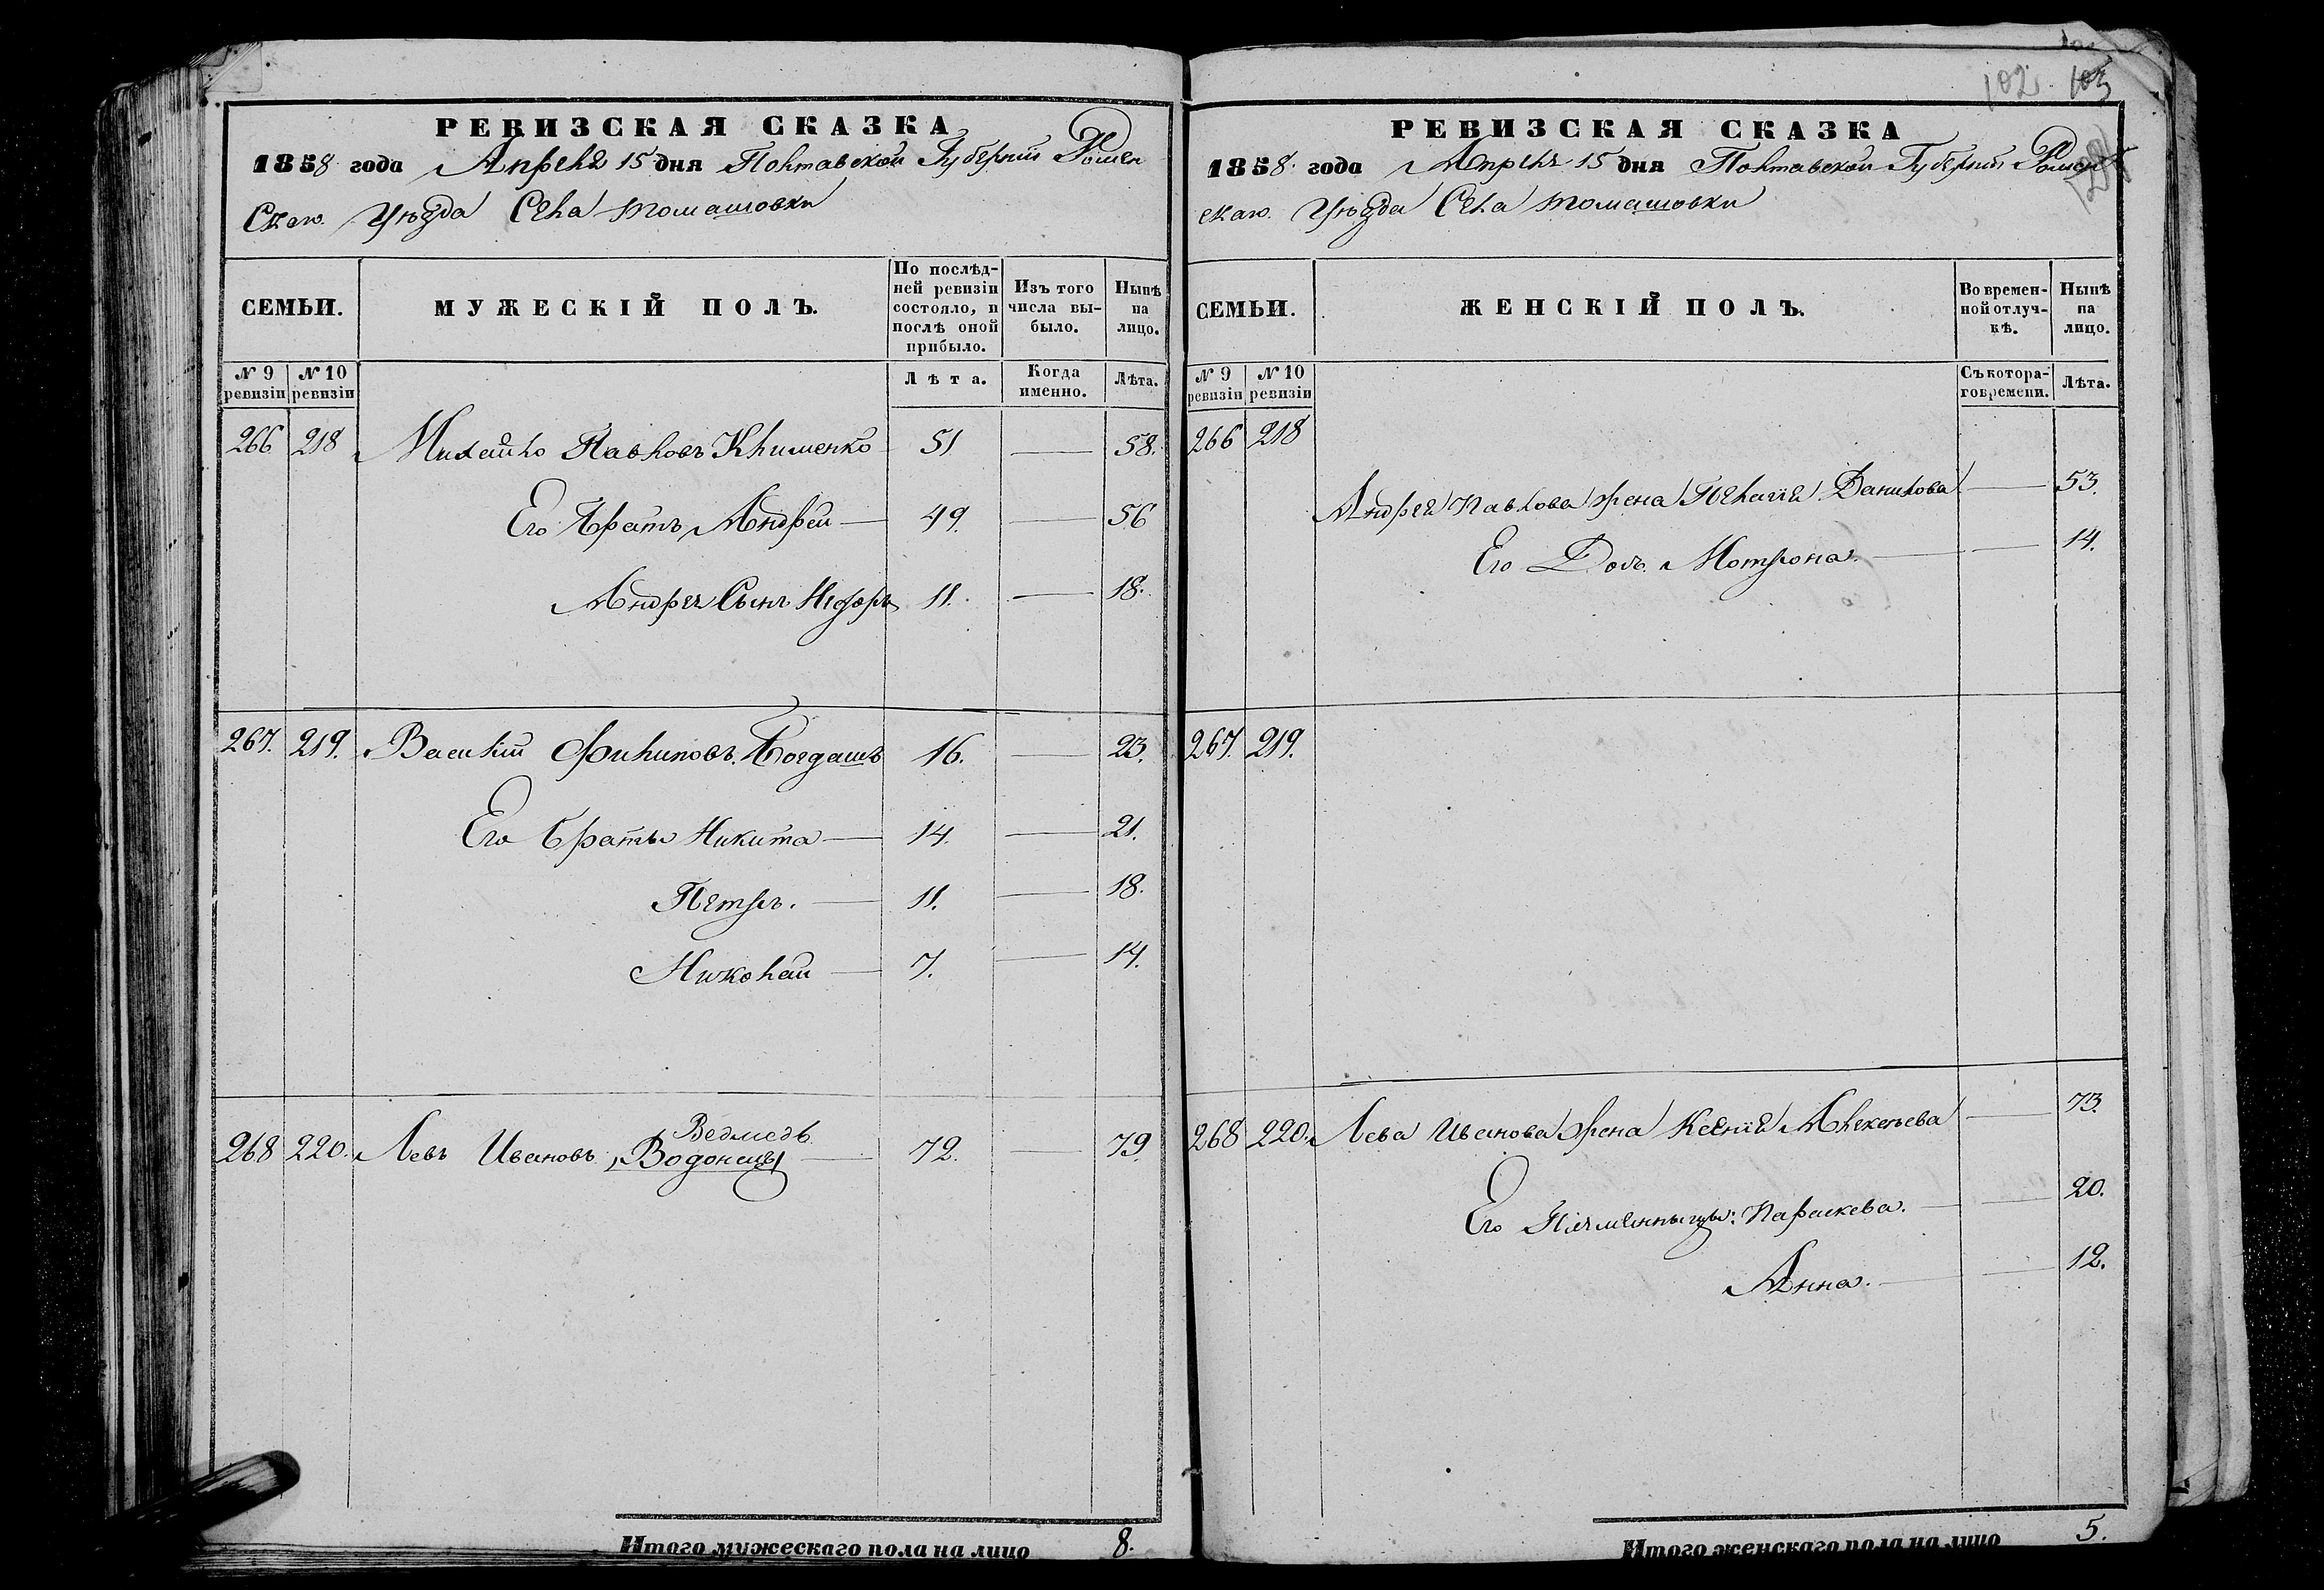 102. 103
РЕВИЗСКАЯ СКАЗКА
1858 года Апреля 15 дня Полтавской Губернiи Ромен
скаго Уѣзда Села Томашовки
СЕМЬИ.
МУЖЕСКІЙ ПОЛЪ.
По послѣд-
ней ревизіи
состояло, и
послѣ оной
прибыло.
Изъ того
числа вы-
было.
Нынѣ
на
лицо.
№ 9
ревизіи
№ 10
ревизіи
Лѣта.
Когда
именно.
Лѣта.
266 218 Михайло Павловъ Клименко 51 — 58.
Его Братъ Андрей — 49. — 56
Андрея Сынъ Нiфоръ 11. — 18.
267. 219. Василiй Филиповъ Богдашъ 16. — 23.
Его Братья Никита — 14. — 21.
Петръ. — 11. — 18.
Николай — 7. — 14.
Ведмедь
268 220. Левъ Ивановъ, Водонецы — 72. — 79.
Итого мужескаго пола на лицо 8.
РЕВИЗСКАЯ СКАЗКА
1858 года Апреля 15 дня Полтавской Губернiи Ромен
скаго Уѣзда Села Томашовки
СЕМЬИ.
ЖЕНСКІЙ ПОЛЪ.
Во времен-
ной отлуч-
кѣ.
Нынѣ
на
лицо.
№ 9
ревизіи
№ 10
ревизіи
Съ котора-
го времени.
Лѣта.
266 218
Андрея Павлова жена Пелагiя Данилова — 53.
Его Дочь Мотрона. — 14.
267. 219.
268 220. Лева Иванова жена Ксенiя Алексѣева — 73.
Его Племянницы: Параскева. — 20.
Анна. — 12.
Итого женскаго пола на лицо 5.